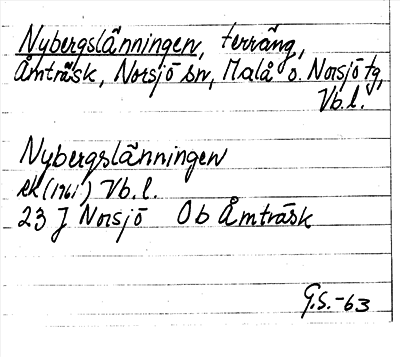 Nybergslänningen, terräng,
Åmträsk, Norsjö sn, Malå o. Norsjö tg,
Vb.l.
Nybergslänningen
ek (1961) Vb.l.
23 J Norsjö Ob Åmträsk
G.S.-63